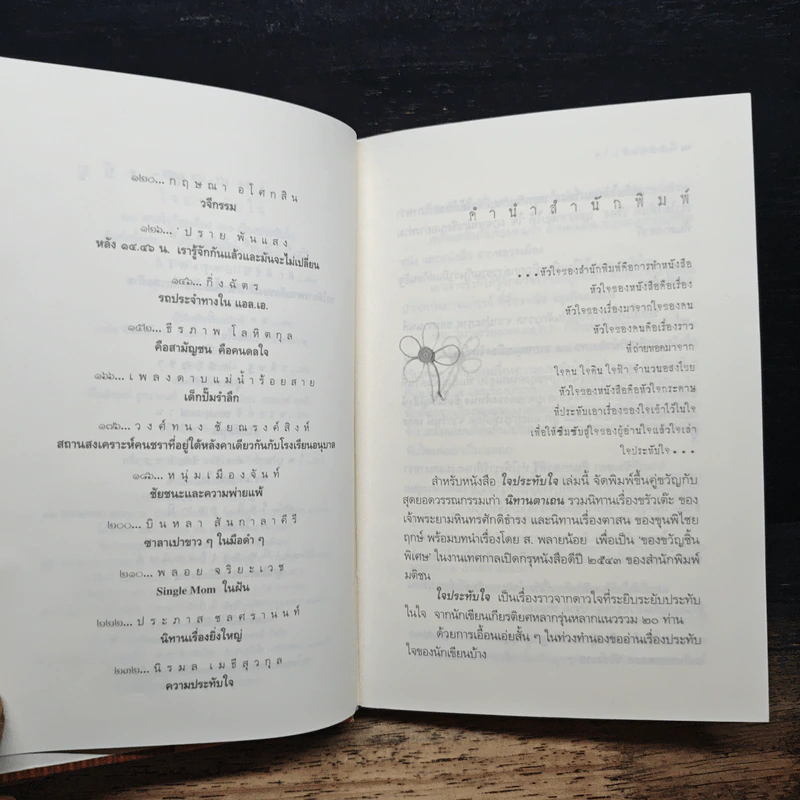 ๑๒๐... กฤษณา อโศกสิน
วจีกรรม
๑๒๖... 'ปราย พันแสง
หลัง ๑๔.๔๖ น. เรารู้จักกันแล้วและมันจะไม่เปลี่ยน
๑๔๖... กิ่งฉัตร
รถประจำทางใน แอล.เอ.
๑๕๒... ธีรภาพ โลหิตกุล
คือสามัญชน คือคนดลใจ
๑๖๖... เพลงดาบแม่น้ำร้อยสาย
เด็กปั๊มรำลึก
๑๗๖... วงศ์ทนง ชัยณรงค์สิงห์
สถานสงเคราะห์คนชราที่อยู่ใต้หลังคาเดียวกันกับโรงเรียนอนุบาล
๑๘๖... หนุ่มเมืองจันท์
ชัยชนะและความพ่ายแพ้
๒๐๐... บินหลา สันกาลาคีรี
ซาลาเปาขาว ๆ ในมือดำ ๆ
๒๑๐... พลอย จริยะเวช
Single Mom ในฝัน
๒๒๒... ประภาส ชลศรานนท์
นิทานเรื่องยิ่งใหญ่
๒๓๒... นิรมล เมธีสุวกุล
ความประทับใจ
คำนำสำนักพิมพ์
...หัวใจของสำนักพิมพ์คือการทำหนังสือ
หัวใจของหนังสือคือเรื่อง
หัวใจของเรื่องมาจากใจของคน
หัวใจของคนคือเรื่องราว
ที่ถ่ายทอดมาจาก
ใจคน ใจดิน ใจฟ้า จำนวนอสงไขย
หัวใจของหนังสือคือหัวใจกระดาษ
ที่ประทับเอาเรื่องของใจเข้าไว้ในใจ
เพื่อให้ซึมซับสู่ใจของผู้อ่านใจแล้วใจเล่า
ใจประทับใจ...
สำหรับหนังสือ ใจประทับใจ เล่มนี้ จัดพิมพ์ขึ้นคู่ขวัญกับ
สุดยอดวรรณกรรมเก่า นิทานตาเถน รวมนิทานเรื่องขรัวเต๊ะ ของ
เจ้าพระยามหินทรศักดิ์ธำรง และนิทานเรื่องตาสน ของขุนพิไชย
ฤกษ์ พร้อมบทนำเรื่องโดย ส. พลายน้อย เพื่อเป็น 'ของขวัญชิ้น
พิเศษ' ในงานเทศกาลเปิดกรุหนังสือดีปี ๒๕๔๓ ของสำนักพิมพ์
มติชน
ใจประทับใจ เป็นเรื่องราวจากดาวใจที่ระยิบระยับประทับ
ในใจ จากนักเขียนเกียรติยศหลากรุ่นหลากแนวรวม ๒๐ ท่าน
ด้วยการเอื้อนเอ่ยสั้น ๆ ในท่วงทำนองขออ่านเรื่องประทับ
ใจของนักเขียนบ้าง